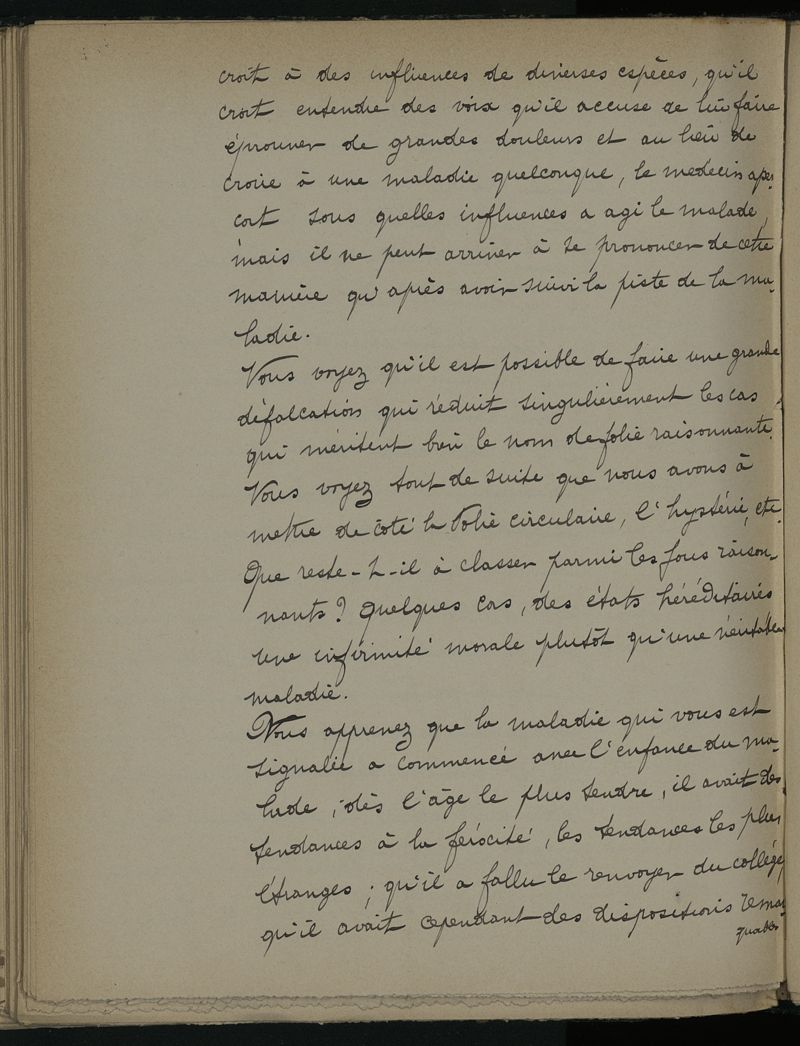 croit à des influences de diverses espèces, qu'il
croit entendre des voix qu'il accuse de lui faire
éprouver de grandes douleurs et au lieu de
croire à une maladie quelconque, le medecin aper-
çoit sous quelles influences a agi le malade,
mais il ne peut arriver à se prononcer de cette
manière qu'après avoir suivi la piste de la ma-
ladie.
Vous voyez qu'il est possible de faire une grande
défalcation qui réduit singulièrement les cas
qui méritent bien le nom de folie raisonnante.
Vous voyez tout de suite que nous avons à
mettre de côté la folie circulaire, l'hystérie, etc.
Que reste-t-il à classer parmi les fous raison-
nants? Quelques cas, des états héréditaires
une infirmité morale plutôt qu'une véritable
maladie.
Vous apprenez que la maladie qui vous est
signalée a commencé avec l'enfance du ma-
lade, dès l'âge le plus tendre, il avait des
tendances à la férocité, les tendances les plus
étranges; qu'il a fallu le renvoyer du collège,
qu'il avait cependant des dispositions remar-
quables